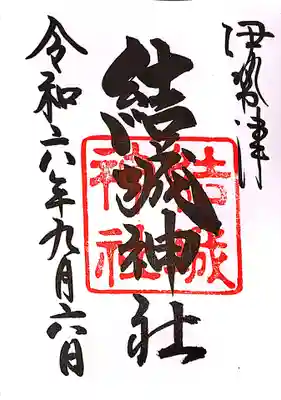 伊勢津
結城神社
結城
神社
令和六年九月六日